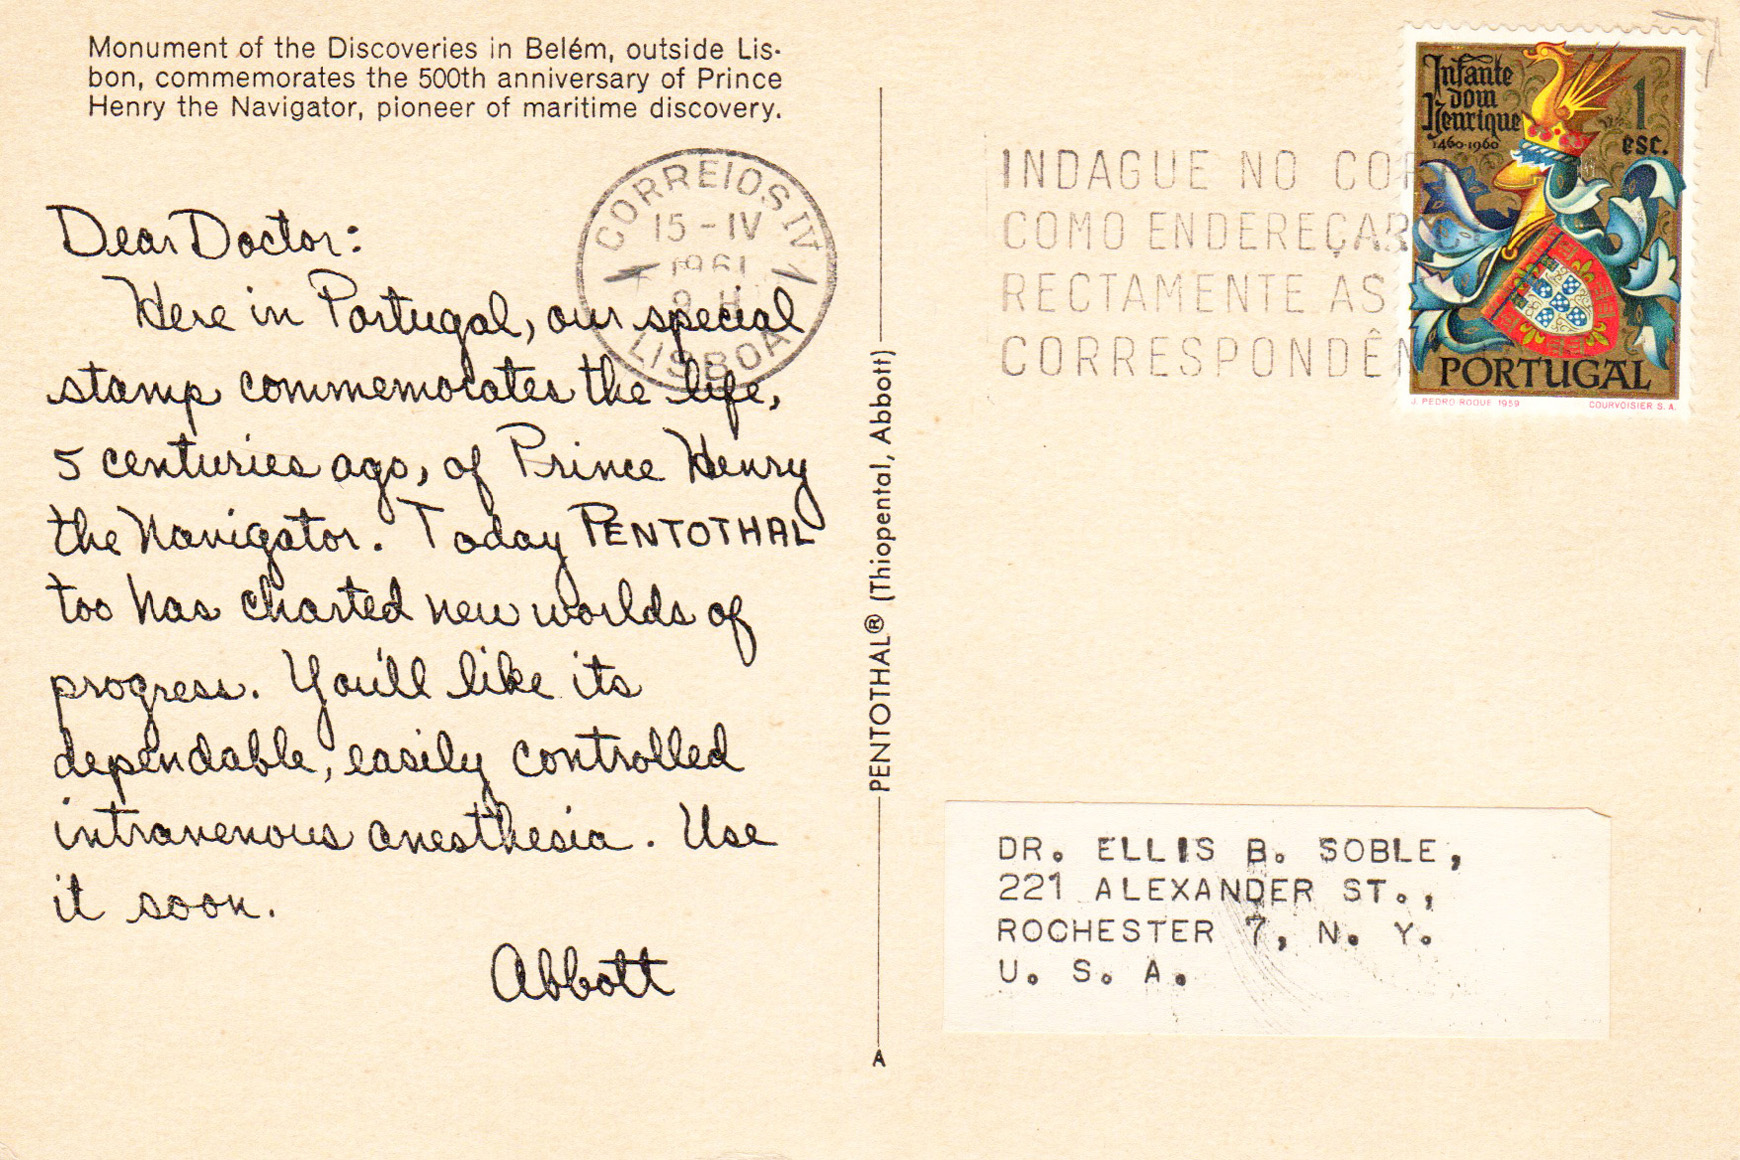 Monument of the Discoveries in Belém, outside Lis-
bon, commemorates the 500th anniversary of Prince
Henry the Navigator, pioneer of maritime discovery.
CORREIOS IV
15-IV
1961
9 H
LISBOA
Dear Doctor:
Here in Portugal, our special
stamp commemorates the life,
5 centuries ago, of Prince Henry
the Navigator. Today PENTOTHAL
too has charted new worlds of
progress. You'll like its
dependable, easily controlled
intravenous anesthesia. Use
it soon.
Abbott
PENTOTHAL® (Thiopental, Abbott)
A
INDAGUE NO COR
COMO ENDEREÇAR
RECTAMENTE AS
CORRESPONDÊN
Infante
dom
Henrique
1460-1960
1
esc.
PORTUGAL
J. PEDRO ROQUE 1959
COURVOISIER S.A.
DR. ELLIS B. SOBLE,
221 ALEXANDER ST.,
ROCHESTER 7, N. Y.
U. S. A.